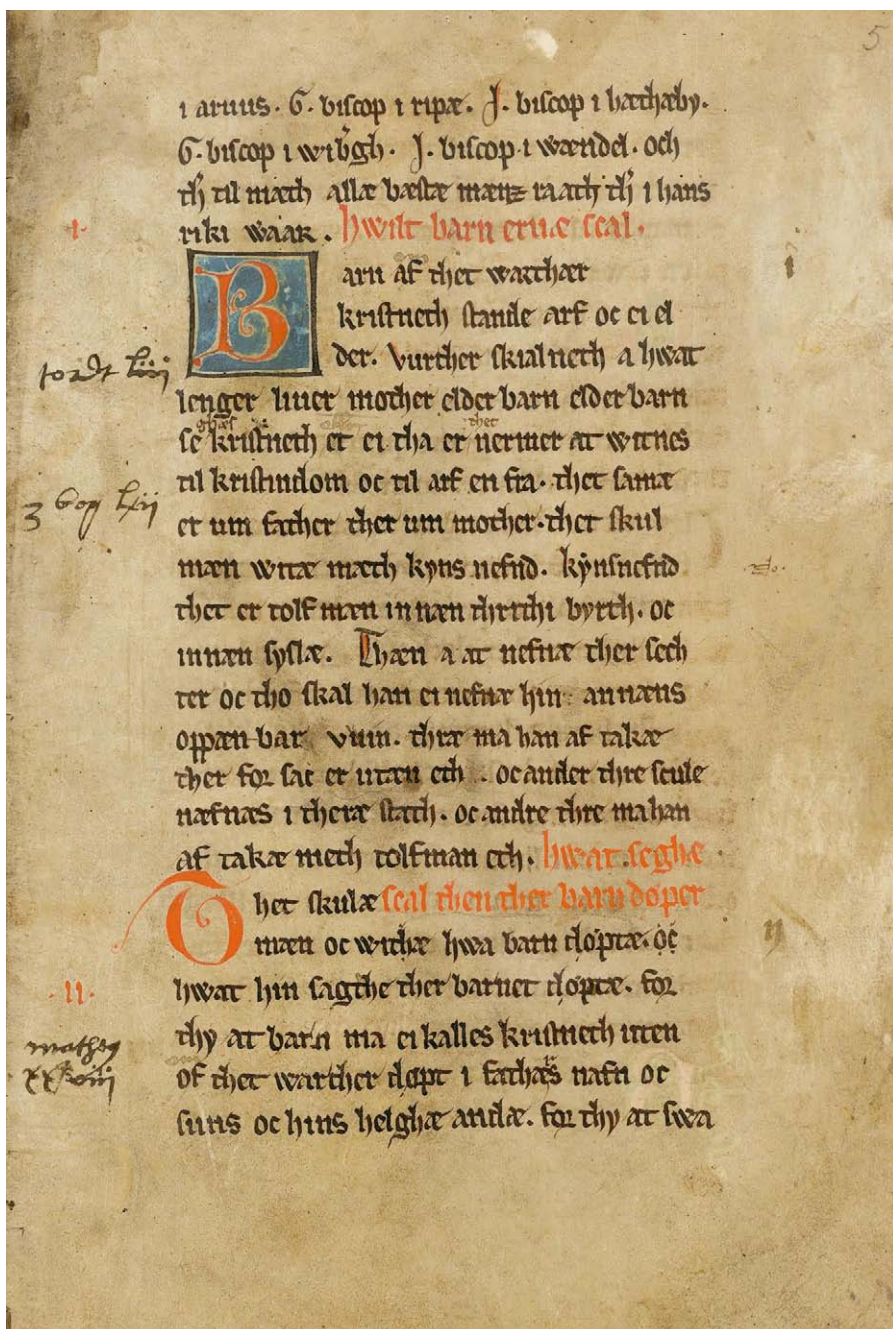 5
i aruus. G. biscop i ripæ. J. biscop i hæthæby.
G. biscop i wibgh. J. biscop i wændel. och
til mæth allæ bæstæ mænz raath i hans
riki waar. hwilt barn eruæ scal.
I.
Barn af thet warthær
kristneth stande arf oc ei el
der. vurther skialneth a hwat
lenger liuer mother elder barn elder barn
se kristneth er ei tha er nermer at witnes
thet
til kristindom oc til arf en fra. thet samæ
er um father thet um mother. ther skul
mæn witæ mæth kyns nefnd. kynsnefnd
thet er tolf mæn innæn thrithi byrth. oc
innæn syslæ. Thæn a at nefnæ ther sech
ter oc tho skal han ei nefnæ hin annæns
oppæn bar vuin. thræ ma han af takæ
ther for sac er utæn eth. oc ander thre scule
næfnæs i theræ stæth. oc andre thre ma han
af takæ meth tolfman eth. hwat seghæ
Thet skulæ scal then ther barn døper
mæn oc withæ hwa barn døptæ. oc
II.
hwat hin sagthe ther barnet døptæ. for
thy at barn ma ei kalles kristneth uten
of thet warther døpt i fathæs nafn oc
suns oc hins helghæ andæ. for thy at swa